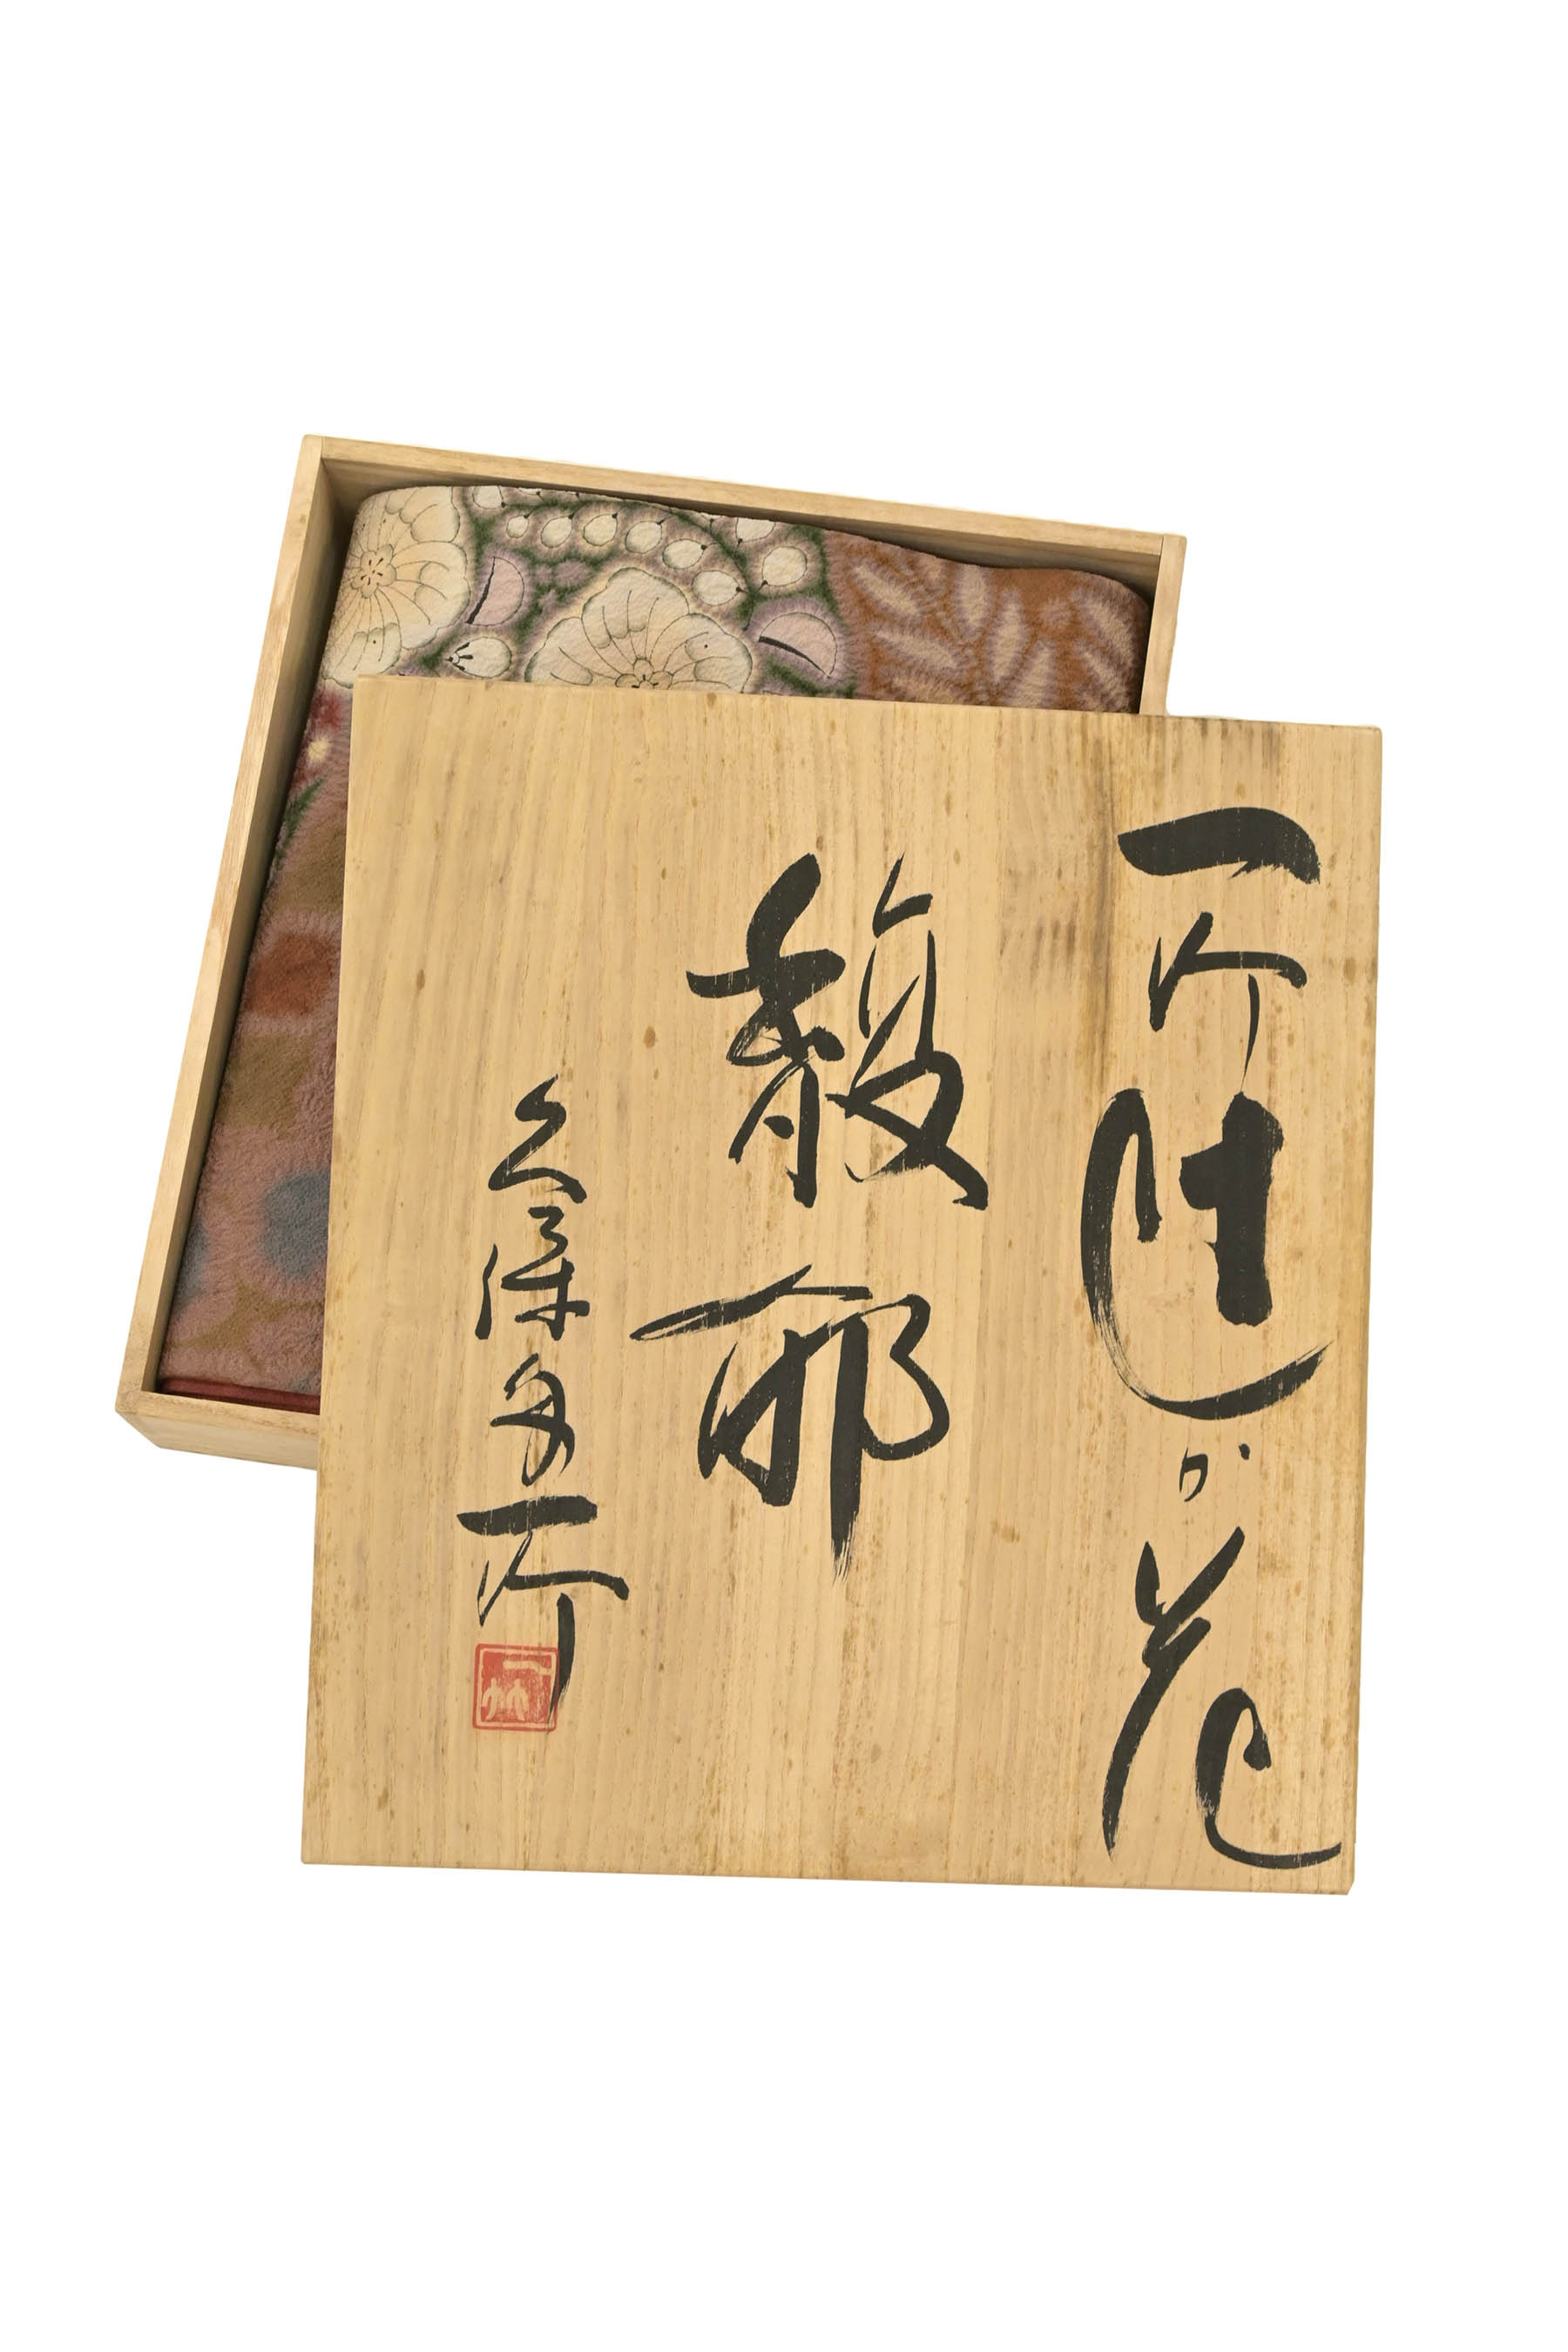 一竹辻が花
馥郁
久保田一竹
一竹